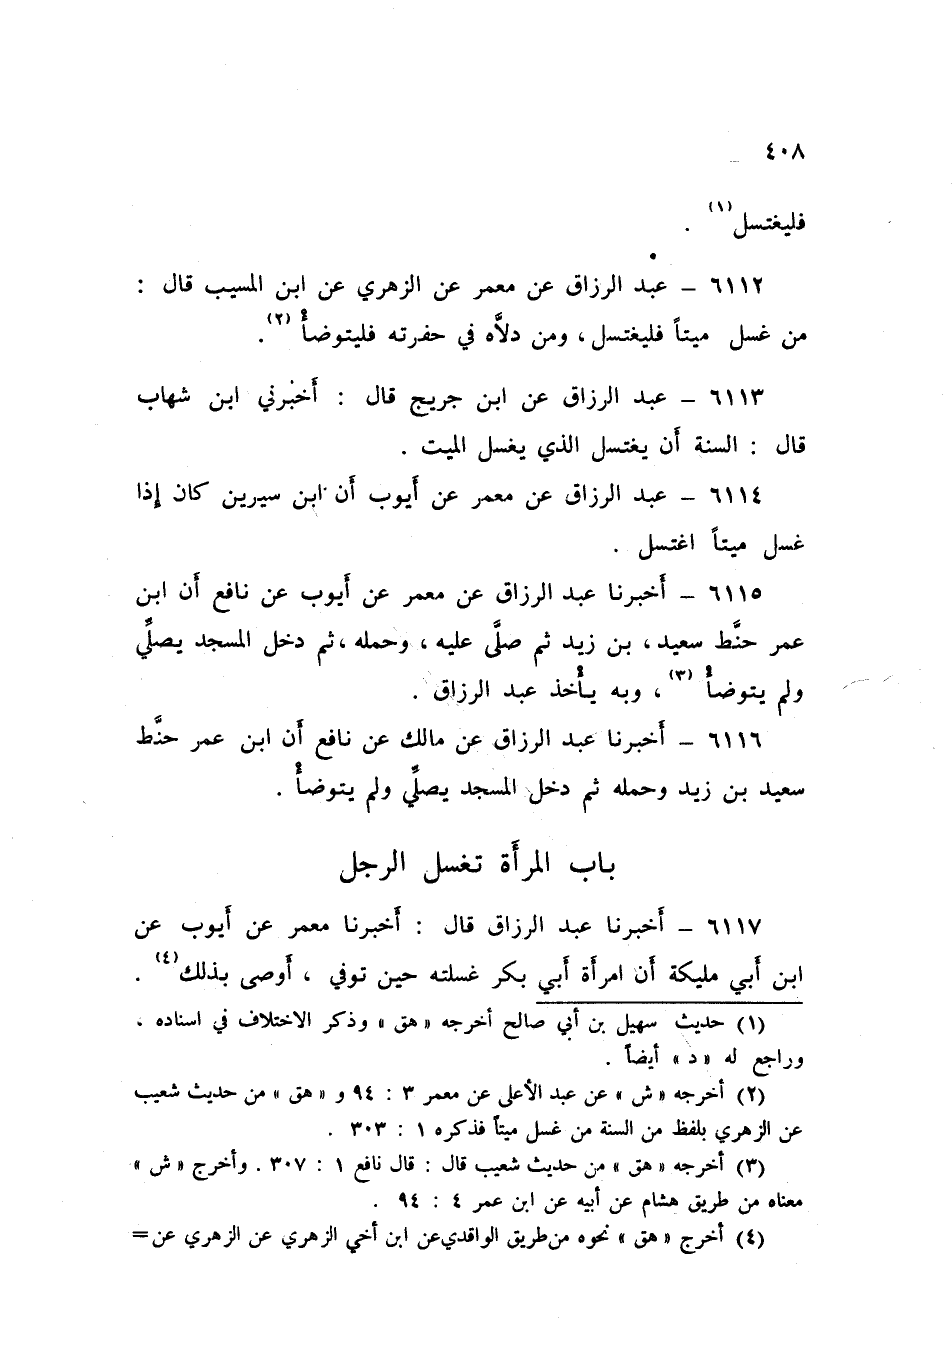 ٤٠٨
فليغتسل(١) .
٦١١٢ – عبد الرزاق عن معمر عن الزهري عن ابن المسيب قال :
من غسل ميتاً فليغتسل، ومن دلاَّه في حفرته فليتوضأْ(٢).
٦١١٣ – عبد الرزاق عن ابن جريج قال : أَخبرني ابن شهاب
قال : السنة أَن يغتسل الذي يغسل الميت .
٦١١٤ – عبد الرزاق عن معمر عن أَيوب أَن ابن سيرين كان إذا
غسل ميتاً اغتسل .
٦١١٥ – أَخبرنا عبد الرزاق عن معمر عن أَيوب عن نافع أَن ابن
عمر حنَّط سعيد، بن زيد ثم صلَّى عليه، وحمله، ثم دخل المسجد يصلِّي
ولم يتوضأْ(٣)، وبه يأْخذ عبد الرزاق .
٦١١٦ – أَخبرنا عبد الرزاق عن مالك عن نافع أَن ابن عمر حنَّط
سعيد بن زيد وحمله ثم دخل المسجد يصلِّي ولم يتوضأْ .
باب المرأَة تغسل الرجل
٦١١٧ – أَخبرنا عبد الرزاق قال : أَخبرنا معمر عن أَيوب عن
ابن أَبي مليكة أَن امرأَة أَبي بكر غسلته حين توفي ، أَوصى بذلك(٤) .
(١) حديث سهيل بن أبي صالح أخرجه «هق» وذكر الاختلاف في اسناده ،
وراجع له «د» أيضاً .
(٢) أخرجه «ش» عن عبد الأعلى عن معمر ٣ : ٩٤ و «هق» من حديث شعيب
عن الزهري بلفظ من السنة من غسل ميتاً فذكره ١ : ٣٠٣ .
(٣) أخرجه «هق» من حديث شعيب قال : قال نافع ١ : ٣٠٧ . وأخرج «ش»
معناه من طريق هشام عن أبيه عن ابن عمر ٤ : ٩٤ .
(٤) أخرج «هق» نحوه من طريق الواقدي عن ابن أخي الزهري عن الزهري عن=